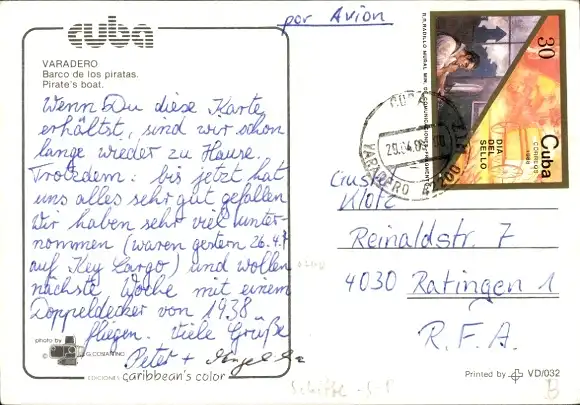 cuba
VARADERO
Barco de los piratas.
Pirate's boat.
Wenn Du diese Karte
erhältst, sind wir schon
lange wieder zu Hause.
Trotzdem: bis jetzt hat
uns alles sehr gut gefallen
Wir haben sehr viel unter-
nommen (waren gestern 26.4.
auf Key Largo) und wollen
nächste Woche mit einem
Doppeldecker von 1938
fliegen. Viele Grüße
Peter +
photo by
© G. COSTANTINO
EDICIONES caribbean's color
par Avion
30
Cuba
CORREOS
DIA
DEL
SELLO
CUBA
VARADERO
Klotz
Reinaldstr. 7
4030 Ratingen 1
R.F.A.
Printed by VD/032